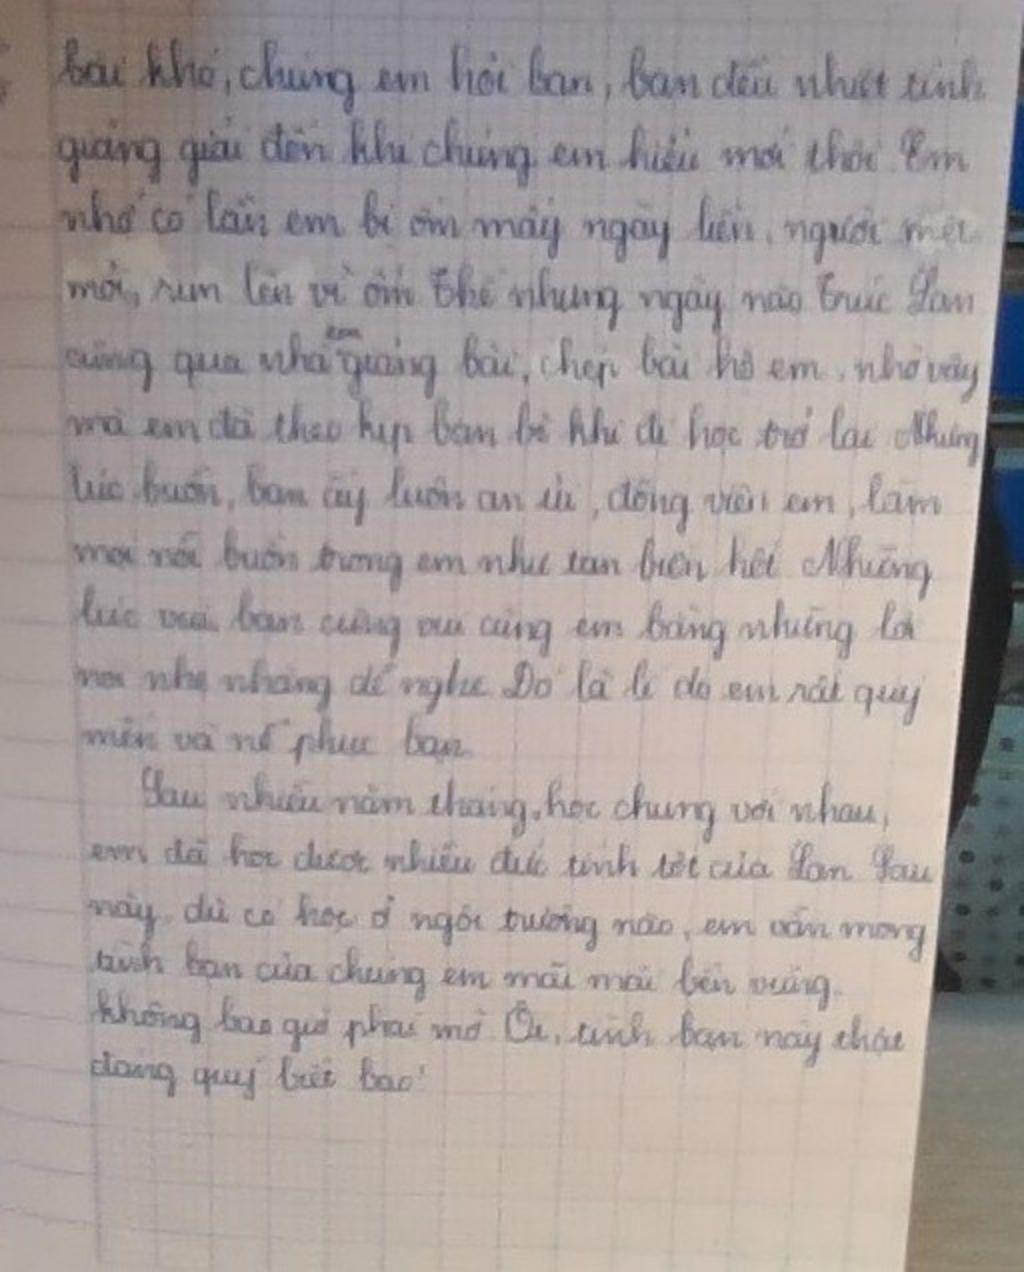 bài khó, chúng em hỏi bạn, bạn đều nhiệt tình
giảng giải đến khi chúng em hiểu mới thôi. Em
nhớ có lần em bị ốm mấy ngày liền, người mệt
mỏi, run lên vì ốm. Thế nhưng ngày nào Trúc Lan
cũng qua nhà em giảng bài, chép bài hộ em, nhờ vậy
mà em đã theo kịp bạn bè khi đi học trở lại. Những
lúc buồn, bạn ấy luôn an ủi, động viên em, làm
mọi nỗi buồn trong em như tan biến hết. Những
lúc vui, bạn cũng vui cùng em bằng những lời
nói nhẹ nhàng dễ nghe. Đó là lí do em rất quý
mến và nể phục bạn.
Sau nhiều năm tháng, học chung với nhau,
em đã học được nhiều đức tính tốt của Lan. Sau
này, dù có học ở ngôi trường nào, em vẫn mong
tình bạn của chúng em mãi mãi bền vững.
không bao giờ phai mờ. Ôi, tình bạn này thật
đáng quý biết bao!